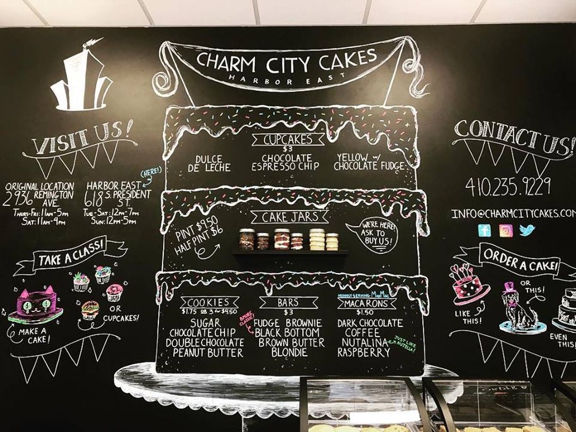 CHARM CITY CAKES
HARBOR EAST
VISIT US!
(HERE!)
ORIGINAL LOCATION
2936 REMINGTON
AVE
THURS-FRI: 11AM-5PM
SAT: 11AM-9PM
HARBOR EAST
618 S. PRESIDENT
ST.
TUE-SAT: 12PM-7PM
SUN: 12PM-5PM
TAKE A CLASS!
MAKE A
CAKE!
OR
CUPCAKES!
CUPCAKES
$3
DULCE
DE LECHE
CHOCOLATE
ESPRESSO CHIP
YELLOW w/
CHOCOLATE FUDGE
CAKE JARS
PINT $9.50
HALF PINT $6
WE'RE HERE!
ASK TO
BUY US!
COOKIES
SUGAR
CHOCOLATE CHIP
DOUBLE CHOCOLATE
PEANUT BUTTER
BARS
$3
FUDGE BROWNIE
BLACK BOTTOM
BROWN BUTTER
BLONDIE
MACARONS
$1.50
DARK CHOCOLATE
COFFEE
NUTALINA
RASPBERRY
CONTACT US!
410.235.9229
INFO@CHARMCITYCAKES.COM
ORDER A CAKE!
LIKE
THIS!
OR
THIS!
EVEN
THIS!